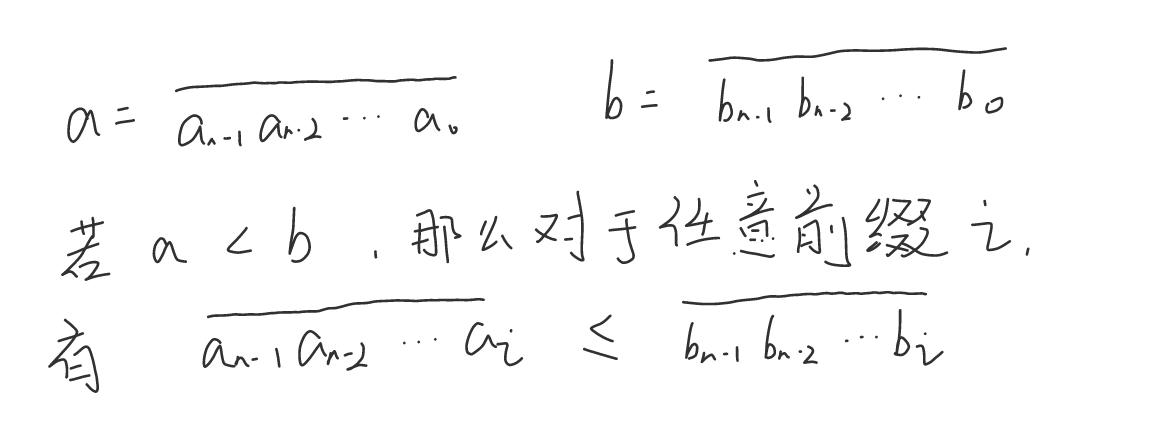 a = \overline{a_{n-1} a_{n-2} \cdots a_0} b = \overline{b_{n-1} b_{n-2} \cdots b_0}
若 a < b , 那么对于任意前缀 i,
有 \overline{a_{n-1} a_{n-2} \cdots a_i} ≤ \overline{b_{n-1} b_{n-2} \cdots b_i}